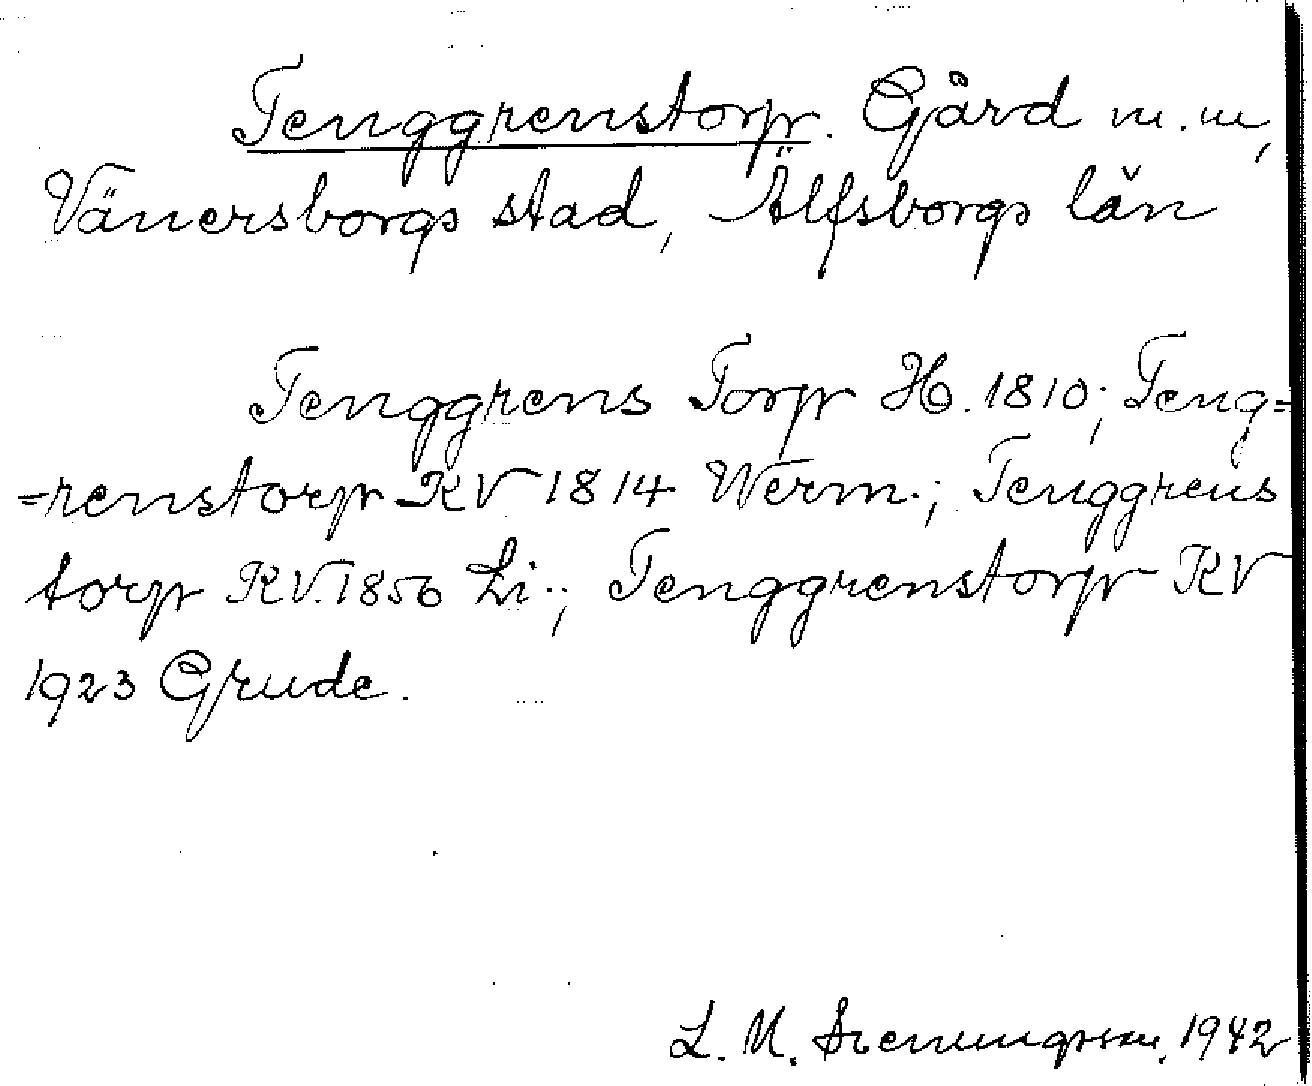 Tenggrenstorp. Gård m.m.,
Vänersborgs stad, Älfsborgs län
Tenggrens Torp H. 1810; Teng=
=renstorp KV 1814 Werm.; Tenggrens
torp KV. 1856 Li..; Tenggrenstorp KV
1923 Grude.
L. M. Svenungsson. 1942